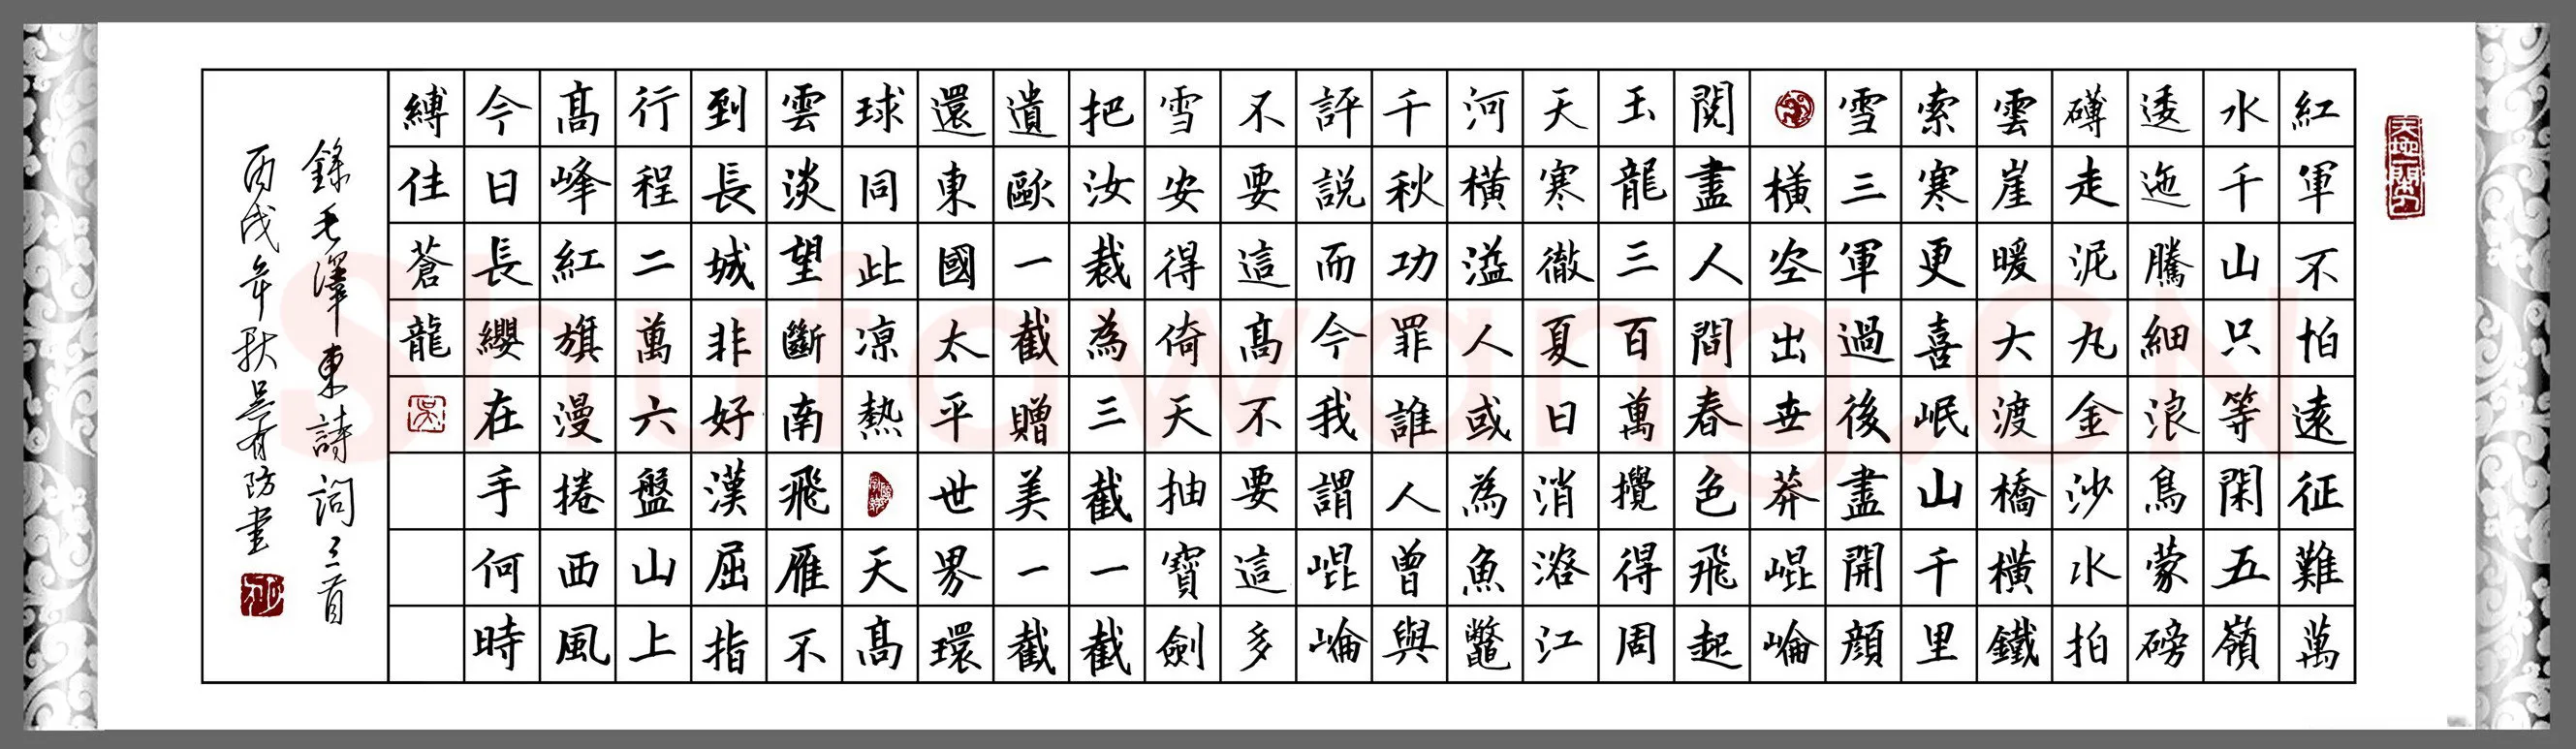 天地一閑人
紅軍不怕遠征難萬
水千山只等閑五嶺
逶迤騰細浪烏蒙磅
礴走泥丸金沙水拍
雲崖暖大渡橋橫鐵
索寒更喜岷山千里
雪三軍過後盡開顏
橫空出世莽崐崘
閱盡人間春色飛起
玉龍三百萬攪得周
天寒徹夏日消溶江
河橫溢人或為魚鼈
千秋功罪誰人曾與
評說而今我謂崐崘
不要這髙不要這多
雪安得倚天抽寶劍
把汝裁為三截一截
遺歐一截贈美一截
還東國太平世界環
球同此凉熱天髙
雲淡望斷南飛雁不
到長城非好漢屈指
行程二萬六盤山上
髙峰紅旗漫捲西風
今日長纓在手何時
縛住蒼龍
吳
錄毛澤東詩詞三首
丙戌年秋吳有防書
Shufawang.CN